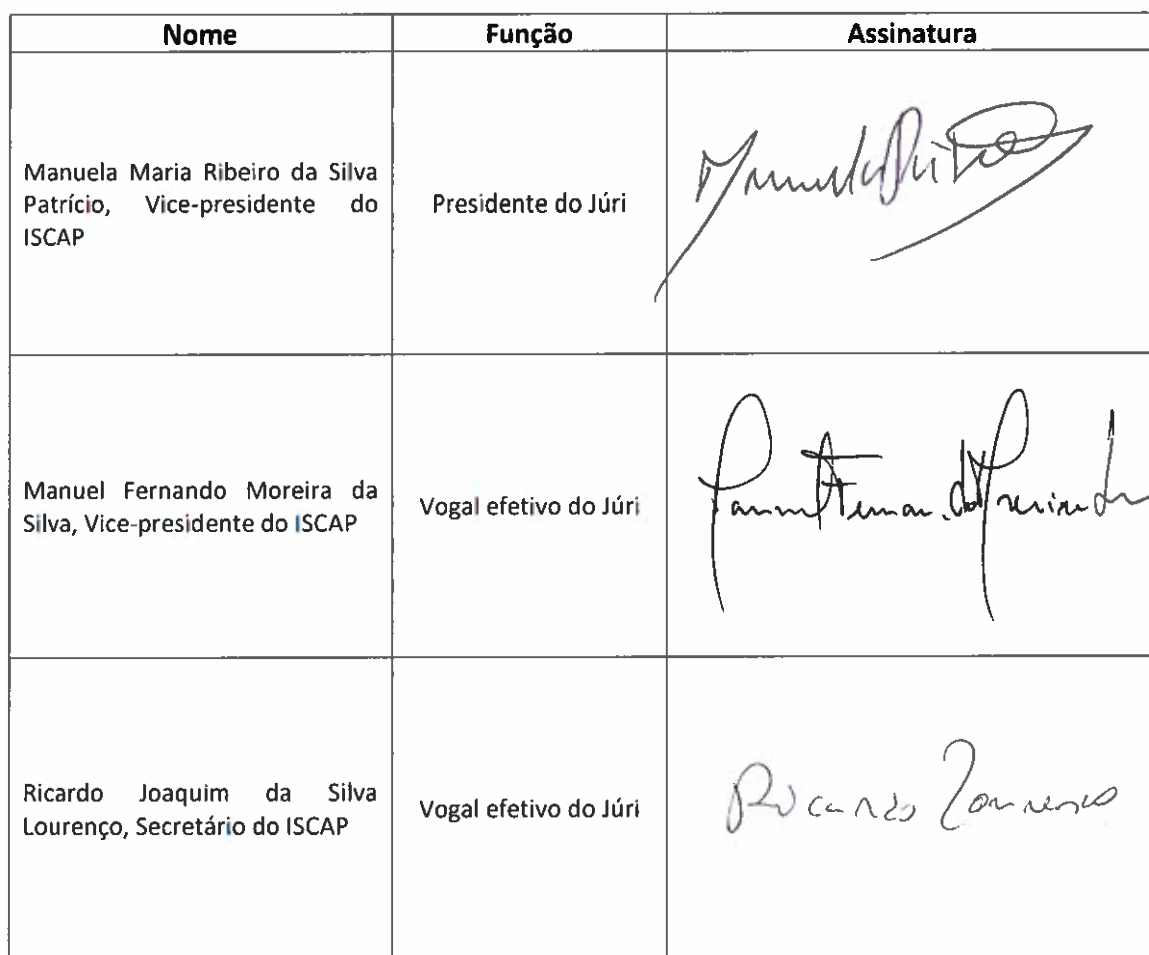 Nome Função Assinatura
Manuela Maria Ribeiro da Silva
Patrício, Vice-presidente do
ISCAP
Presidente do Júri
Manuel Fernando Moreira da
Silva, Vice-presidente do ISCAP
Vogal efetivo do Júri
Ricardo Joaquim da Silva
Lourenço, Secretário do ISCAP
Vogal efetivo do Júri
Ricardo Lourenço